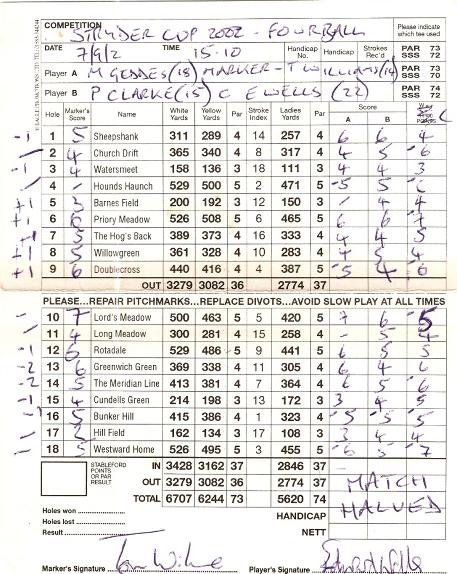 COMPETITION STRYDER CUP 2002 - FOURBALL Please indicate which tee used
DATE 7/9/2 TIME 15.10 Handicap No. Handicap Strokes Rec'd PAR 73 SSS 72
Player A M GEDDES (18) MARKER - T WILLIAMS (14) PAR 73 SSS 70
Player B P CLARKE (15) C EWELLS (22) PAR 74 SSS 72
Hole Marker's Score Name White Yards Yellow Yards Par Stroke Index Ladies Yards Par Score A B
-1 1 5 Sheepshank 311 289 4 14 257 4 6 6 4
2 4 Church Drift 365 340 4 8 317 4 4 5 6
3 4 Watersmeet 158 136 3 18 111 3 4 4 3
4 Hounds Haunch 529 500 5 2 471 5 5 5
+1 5 3 Barnes Field 200 192 3 12 150 3 4 4
+1 6 6 Priory Meadow 526 508 5 6 465 5 6 6 7
7 5 The Hog's Back 389 373 4 16 333 4 4 4 5
+1 8 5 Willowgreen 361 328 4 10 283 4 4 5 4
+1 9 6 Doublecross 440 416 4 4 387 5 5 4 6
OUT 3279 3082 36 2774 37
PLEASE...REPAIR PITCHMARKS...REPLACE DIVOTS...AVOID SLOW PLAY AT ALL TIMES
10 7 Lord's Meadow 500 463 5 5 420 5 7 6 5
11 4 Long Meadow 300 281 4 15 258 4 - 5 4
-1 12 6 Rotadale 529 486 5 9 441 5 6 5 5
-2 13 6 Greenwich Green 369 338 4 11 305 4 6 4 6
-2 14 5 The Meridian Line 413 381 4 7 364 4 6 5 6
15 4 Cundells Green 214 198 3 13 172 3 3 4 5
16 5 Bunker Hill 415 386 4 1 323 4 5 5 5
17 2 Hill Field 162 134 3 17 108 3 3 4 4
18 5 Westward Home 526 495 5 3 455 5 6 5 7
STABLEFORD POINTS OR PAR RESULT
IN 3428 3162 37 2846 37
OUT 3279 3082 36 2774 37 MATCH
TOTAL 6707 6244 73 5620 74 HALVED
Holes won
HANDICAP
Holes lost
Result NETT
Marker's Signature Player's Signature